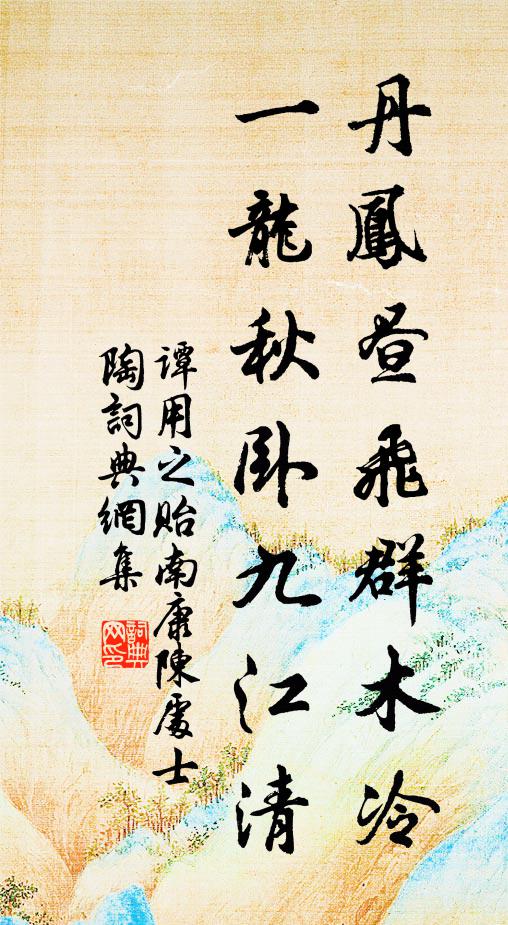 丹鳳晝飛群木冷
一龍秋臥九江清
譚用之貽南康陳處士
陶詞典網集
詞典網印